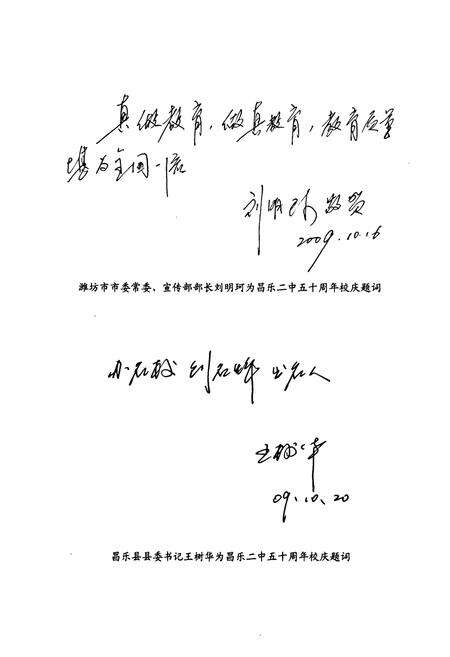 真做教育，做真教育，教育质量
堪为全国一流
刘明珂 敬贺
2009.10.16
潍坊市市委常委、宣传部部长刘明珂为昌乐二中五十周年校庆题词
办名校 创名牌 出名人
王树华
09.10.20
昌乐县县委书记王树华为昌乐二中五十周年校庆题词